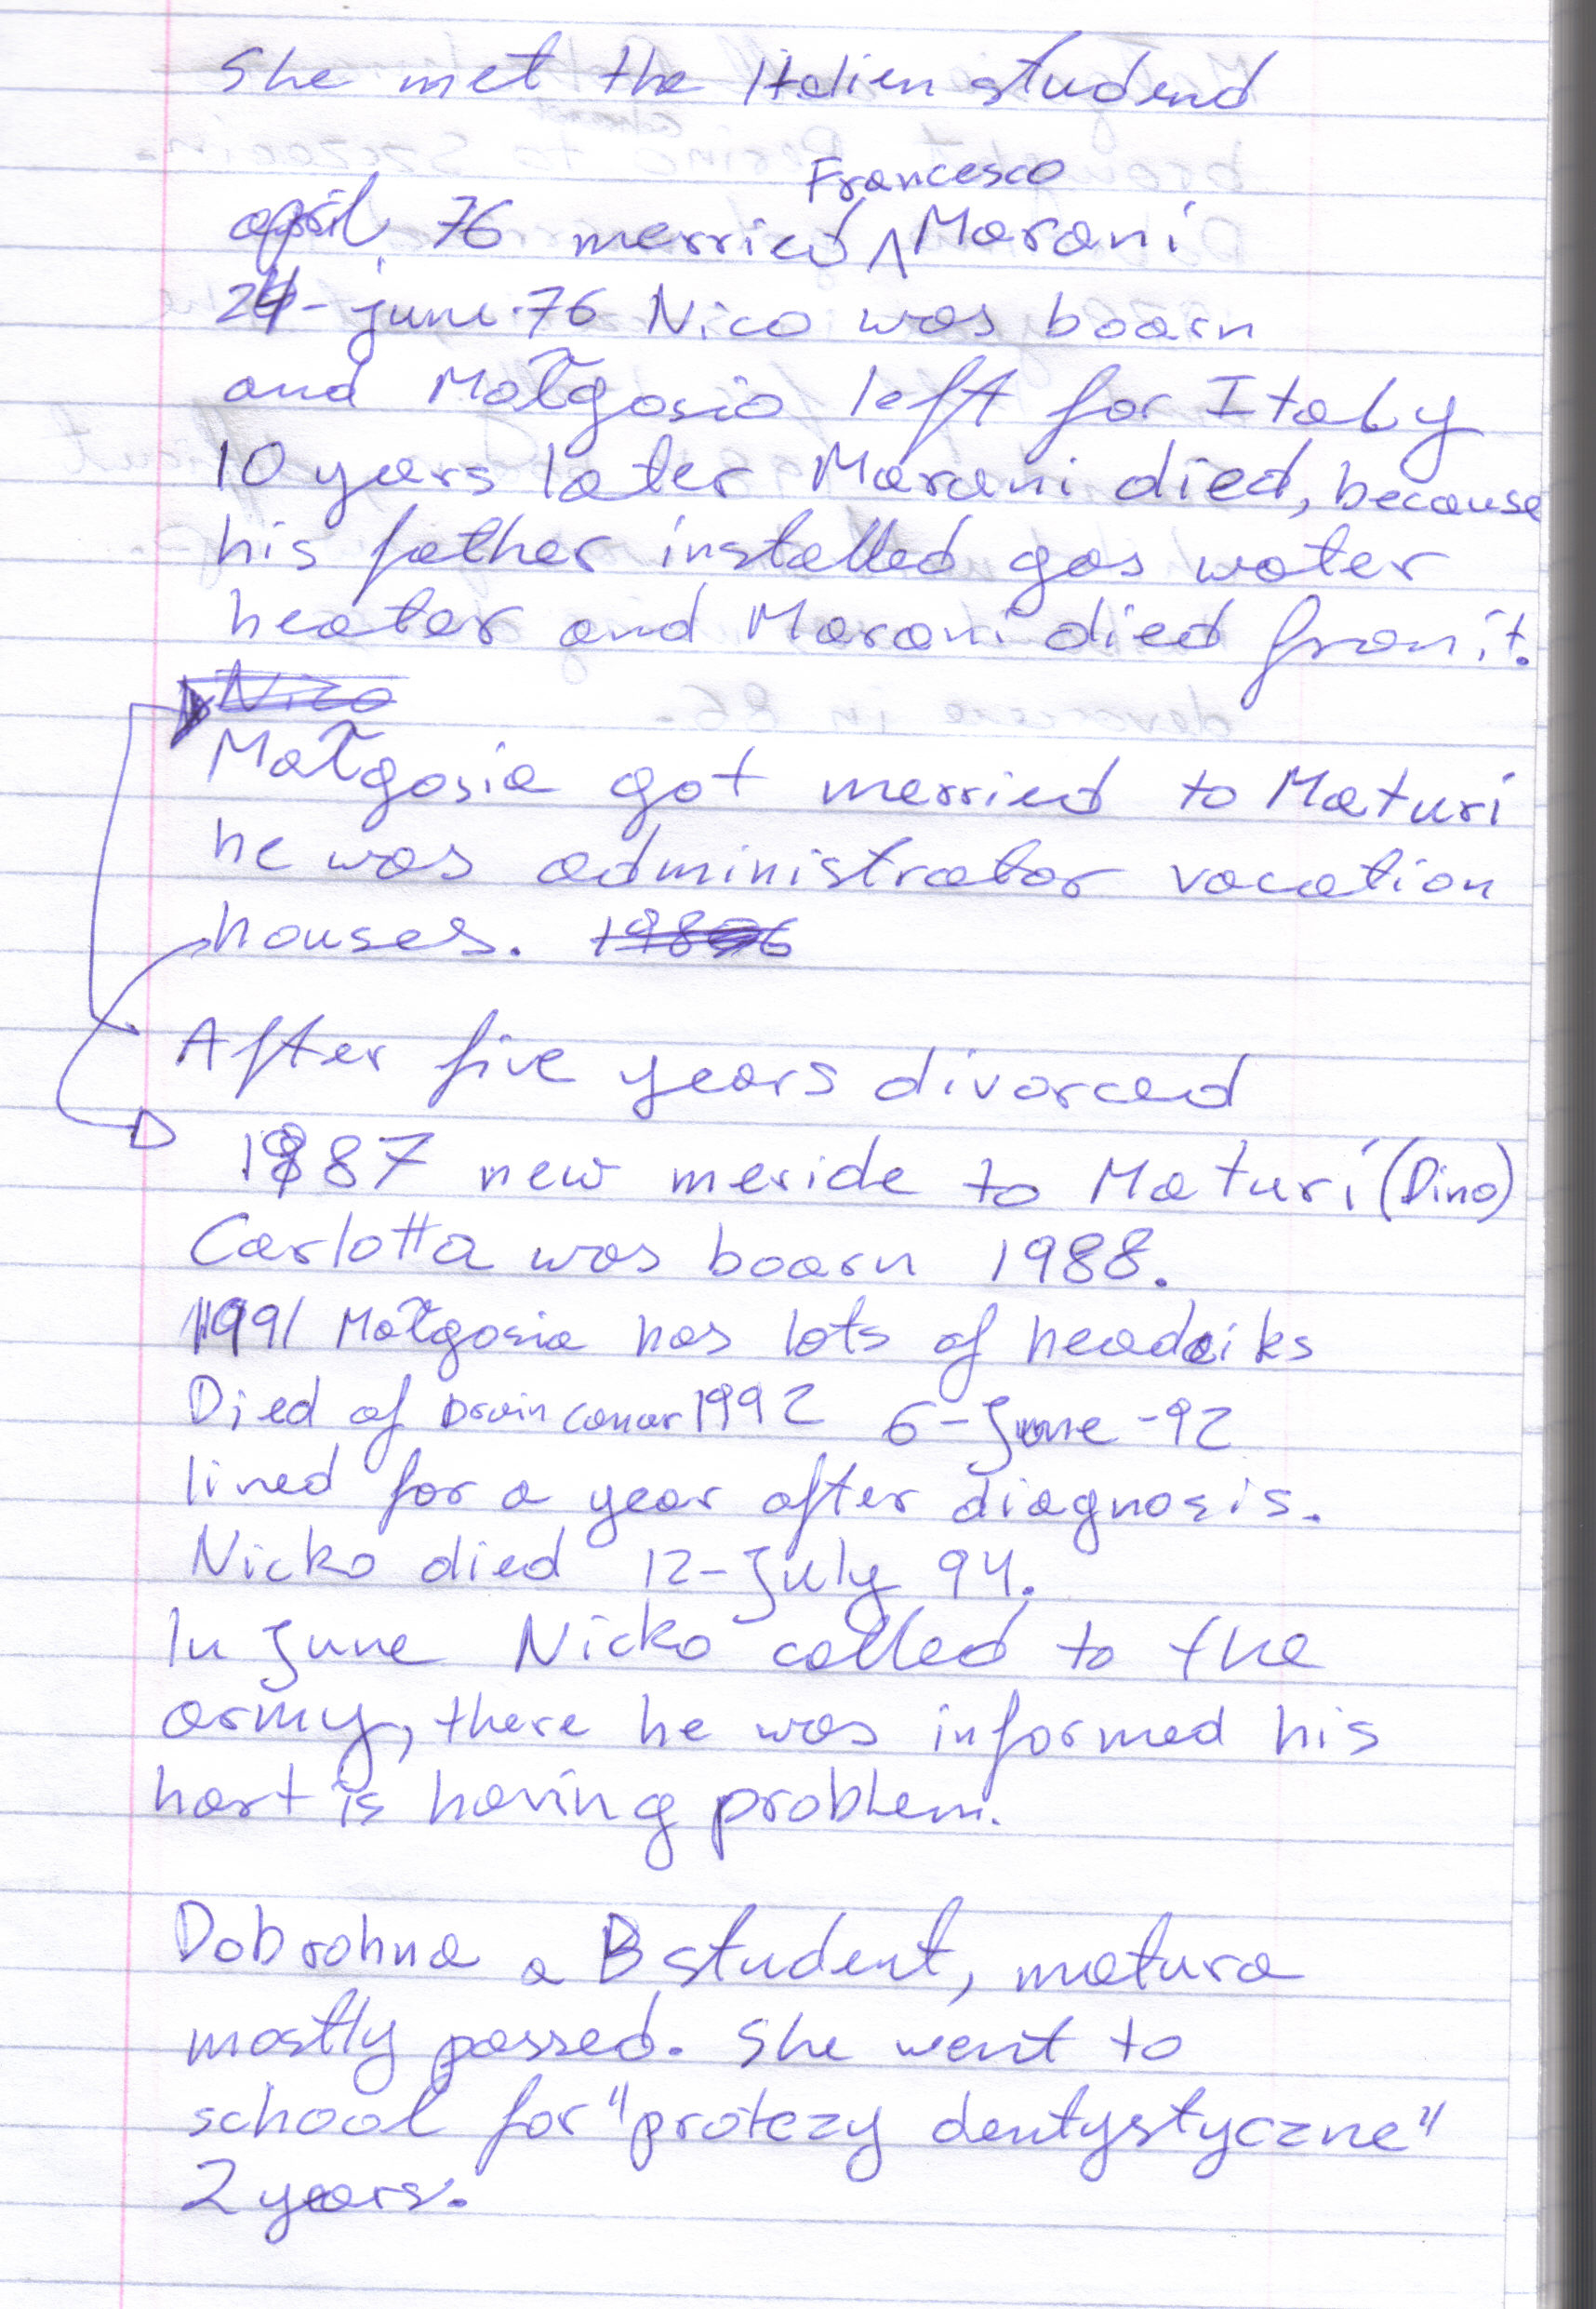 She met the Italien studend
Francesco
april. 76 merried ^ Marani
24-june.76 Nico was boarn
and Małgosia left for Italy
10 years later Marani died, because
his father installed gas water
heater and Marani died from it.
Nico
Małgosia got merried to Maturi
he was administrator vacation
houses. 1986
After five years divorced
1987 new meride to Maturi (Dino)
Carlotta was boarn 1988.
1991 Małgosia has lots of headeiks
Died of 1992 6-June-92
lived for a year after diagnosis.
Nicko died 12-July 94.
In June Nicko called to the
army, there he was informed his
hart is having problem.
Dobrohna a B student, matura
mostly passed. She went to
school for "protezy dentystyczne"
2 years.